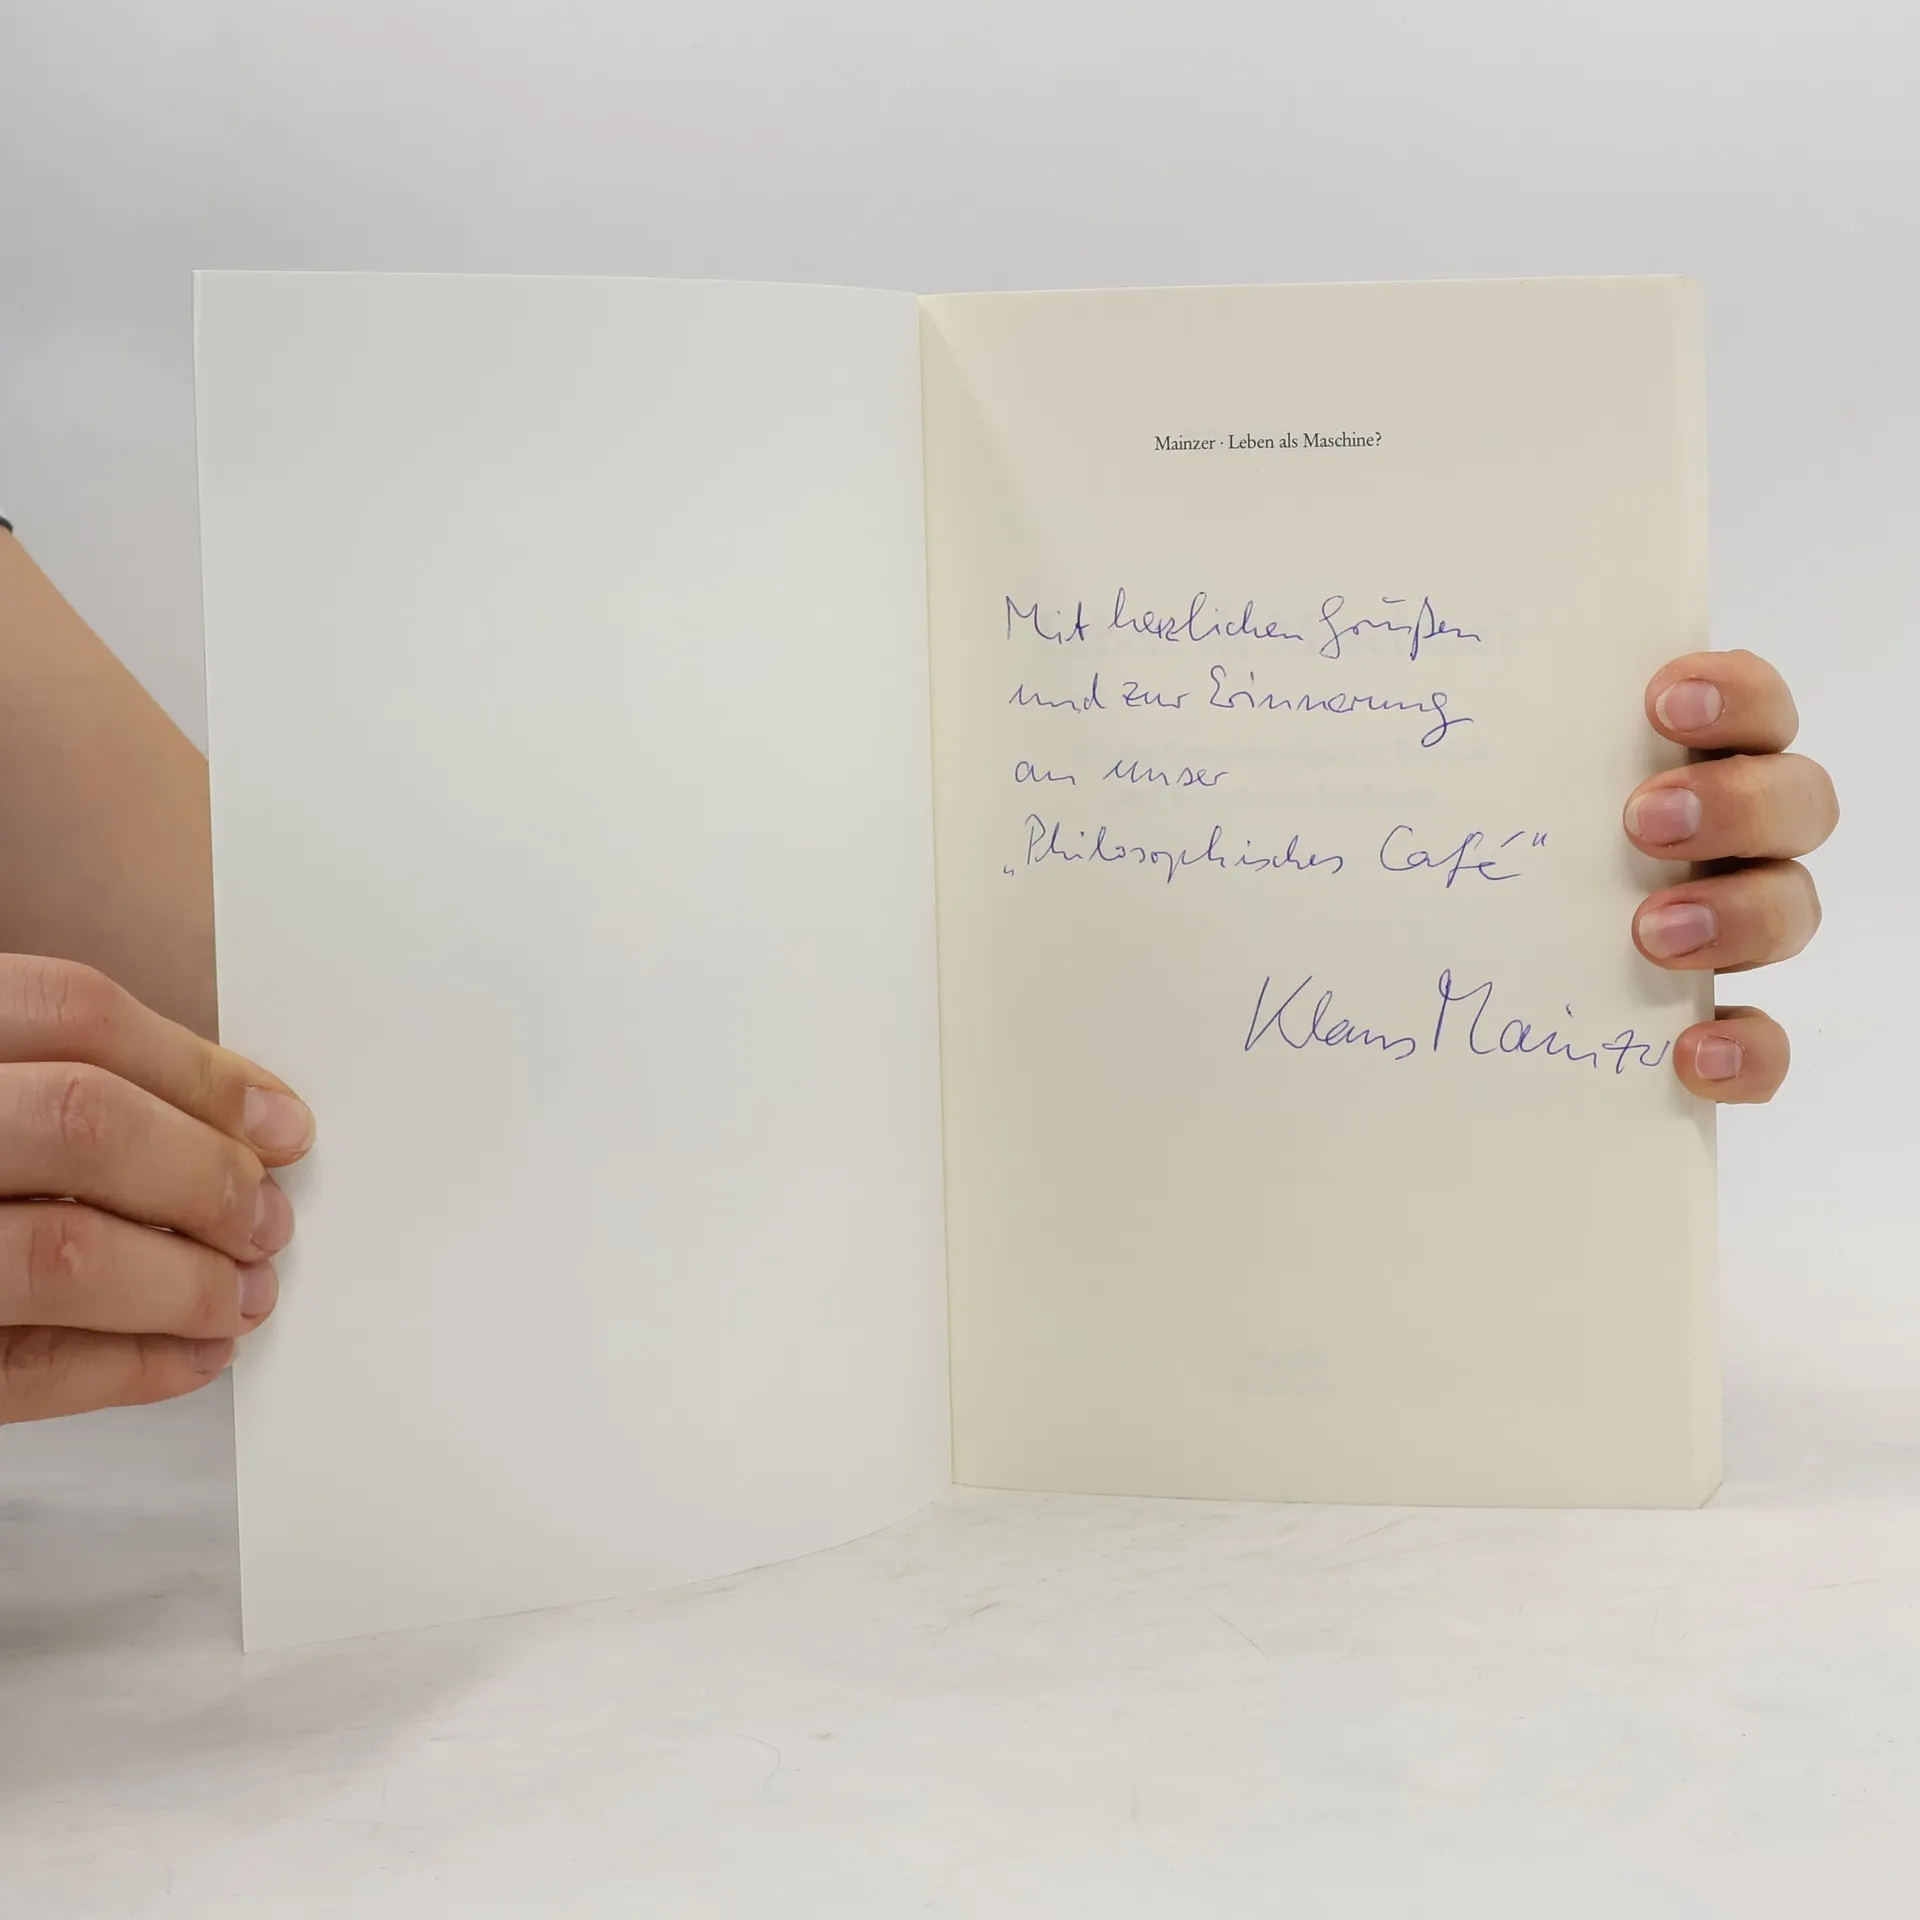 Mainzer · Leben als Maschine?
Mit herzlichen Grüßen
und zur Erinnerung
an unser
„Philosophisches Café“
Klaus Mainzer